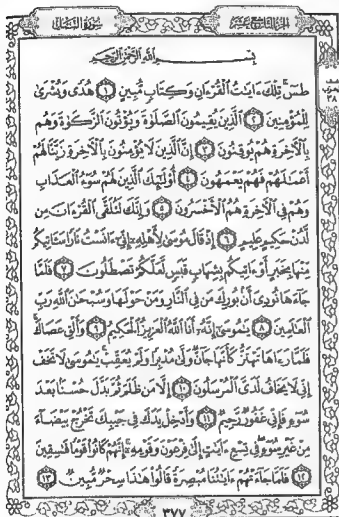 الجزء التاسع عشر
سورة النمل
بسم الله الرحمن الرحيم
طسٓ ۚ تِلْكَ ءَايَٰتُ ٱلْقُرْءَانِ وَكِتَابٍ مُّبِينٍ ١ هُدًى وَبُشْرَىٰ
لِلْمُؤْمِنِينَ ٢ ٱلَّذِينَ يُقِيمُونَ ٱلصَّلَوٰةَ وَيُؤْتُونَ ٱلزَّكَوٰةَ وَهُم
بِٱلْءَاخِرَةِ هُمْ يُوقِنُونَ ٣ إِنَّ ٱلَّذِينَ لَا يُؤْمِنُونَ بِٱلْءَاخِرَةِ زَيَّنَّا لَهُمْ
أَعْمَٰلَهُمْ فَهُمْ يَعْمَهُونَ ٤ أُو۟لَٰٓئِكَ ٱلَّذِينَ لَهُمْ سُوٓءُ ٱلْعَذَابِ
وَهُمْ فِى ٱلْءَاخِرَةِ هُمُ ٱلْأَخْسَرُونَ ٥ وَإِنَّكَ لَتُلَقَّى ٱلْقُرْءَانَ مِن
لَّدُنْ حَكِيمٍ عَلِيمٍ ٦ إِذْ قَالَ مُوسَىٰ لِأَهْلِهِۦٓ إِنِّىٓ ءَانَسْتُ نَارًا سَـَٔاتِيكُم
مِّنْهَا بِخَبَرٍ أَوْ ءَاتِيكُم بِشِهَابٍ قَبَسٍ لَّعَلَّكُمْ تَصْطَلُونَ ٧ فَلَمَّا
جَآءَهَا نُودِىَ أَنۢ بُورِكَ مَن فِى ٱلنَّارِ وَمَنْ حَوْلَهَا وَسُبْحَٰنَ ٱللَّهِ رَبِّ
ٱلْعَٰلَمِينَ ٨ يَٰمُوسَىٰٓ إِنَّهُۥٓ أَنَا ٱللَّهُ ٱلْعَزِيزُ ٱلْحَكِيمُ ٩ وَأَلْقِ عَصَاكَ ۚ
فَلَمَّا رَءَاهَا تَهْتَزُّ كَأَنَّهَا جَآنٌّ وَلَّىٰ مُدْبِرًا وَلَمْ يُعَقِّبْ ۚ يَٰمُوسَىٰ لَا تَخَفْ
إِنِّى لَا يَخَافُ لَدَىَّ ٱلْمُرْسَلُونَ ١٠ إِلَّا مَن ظَلَمَ ثُمَّ بَدَّلَ حُسْنًۢا بَعْدَ
سُوٓءٍ فَإِنِّى غَفُورٌ رَّحِيمٌ ١١ وَأَدْخِلْ يَدَكَ فِى جَيْبِكَ تَخْرُجْ بَيْضَآءَ
مِنْ غَيْرِ سُوٓءٍ ۖ فِى تِسْعِ ءَايَٰتٍ إِلَىٰ فِرْعَوْنَ وَقَوْمِهِۦٓ ۚ إِنَّهُمْ كَانُوا۟ قَوْمًا فَٰسِقِينَ
١٢ فَلَمَّا جَآءَتْهُمْ ءَايَٰتُنَا مُبْصِرَةً قَالُوا۟ هَٰذَا سِحْرٌ مُّبِينٌ ١٣
٣٧٧
٣٨